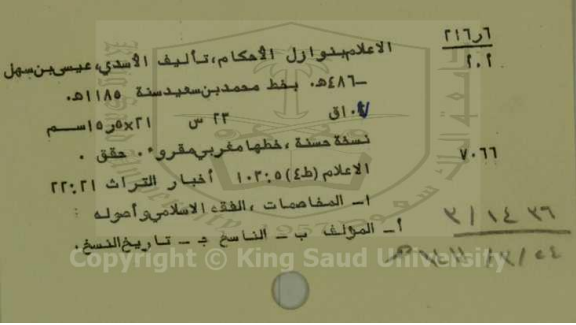 ٢١٦٫٦
أ . أ
الاعلام بنوازل الأحكام، تأليف الأسدي، عيسى بن سهل
ـ ٤٨٦هـ. بخط محمد بن سعيد سنة ١١٨٥هـ.
ق ٢٣ س ٢١×١٥٫٥ سم
٧٠٦٦
نسخة حسنة ، خطها مغربي مقروء . حقق .
الاعلام (ط٤) ١٠٣:٥ أخبار التراث ٢٢:٢١
١ـ المخاصمات ، الفقه الاسلامي وأصوله
أ ـ المؤلف ب ـ الناسخ جـ ـ تاريخ النسخ.
٣/١٤٣٦
Copyright © King Saud University